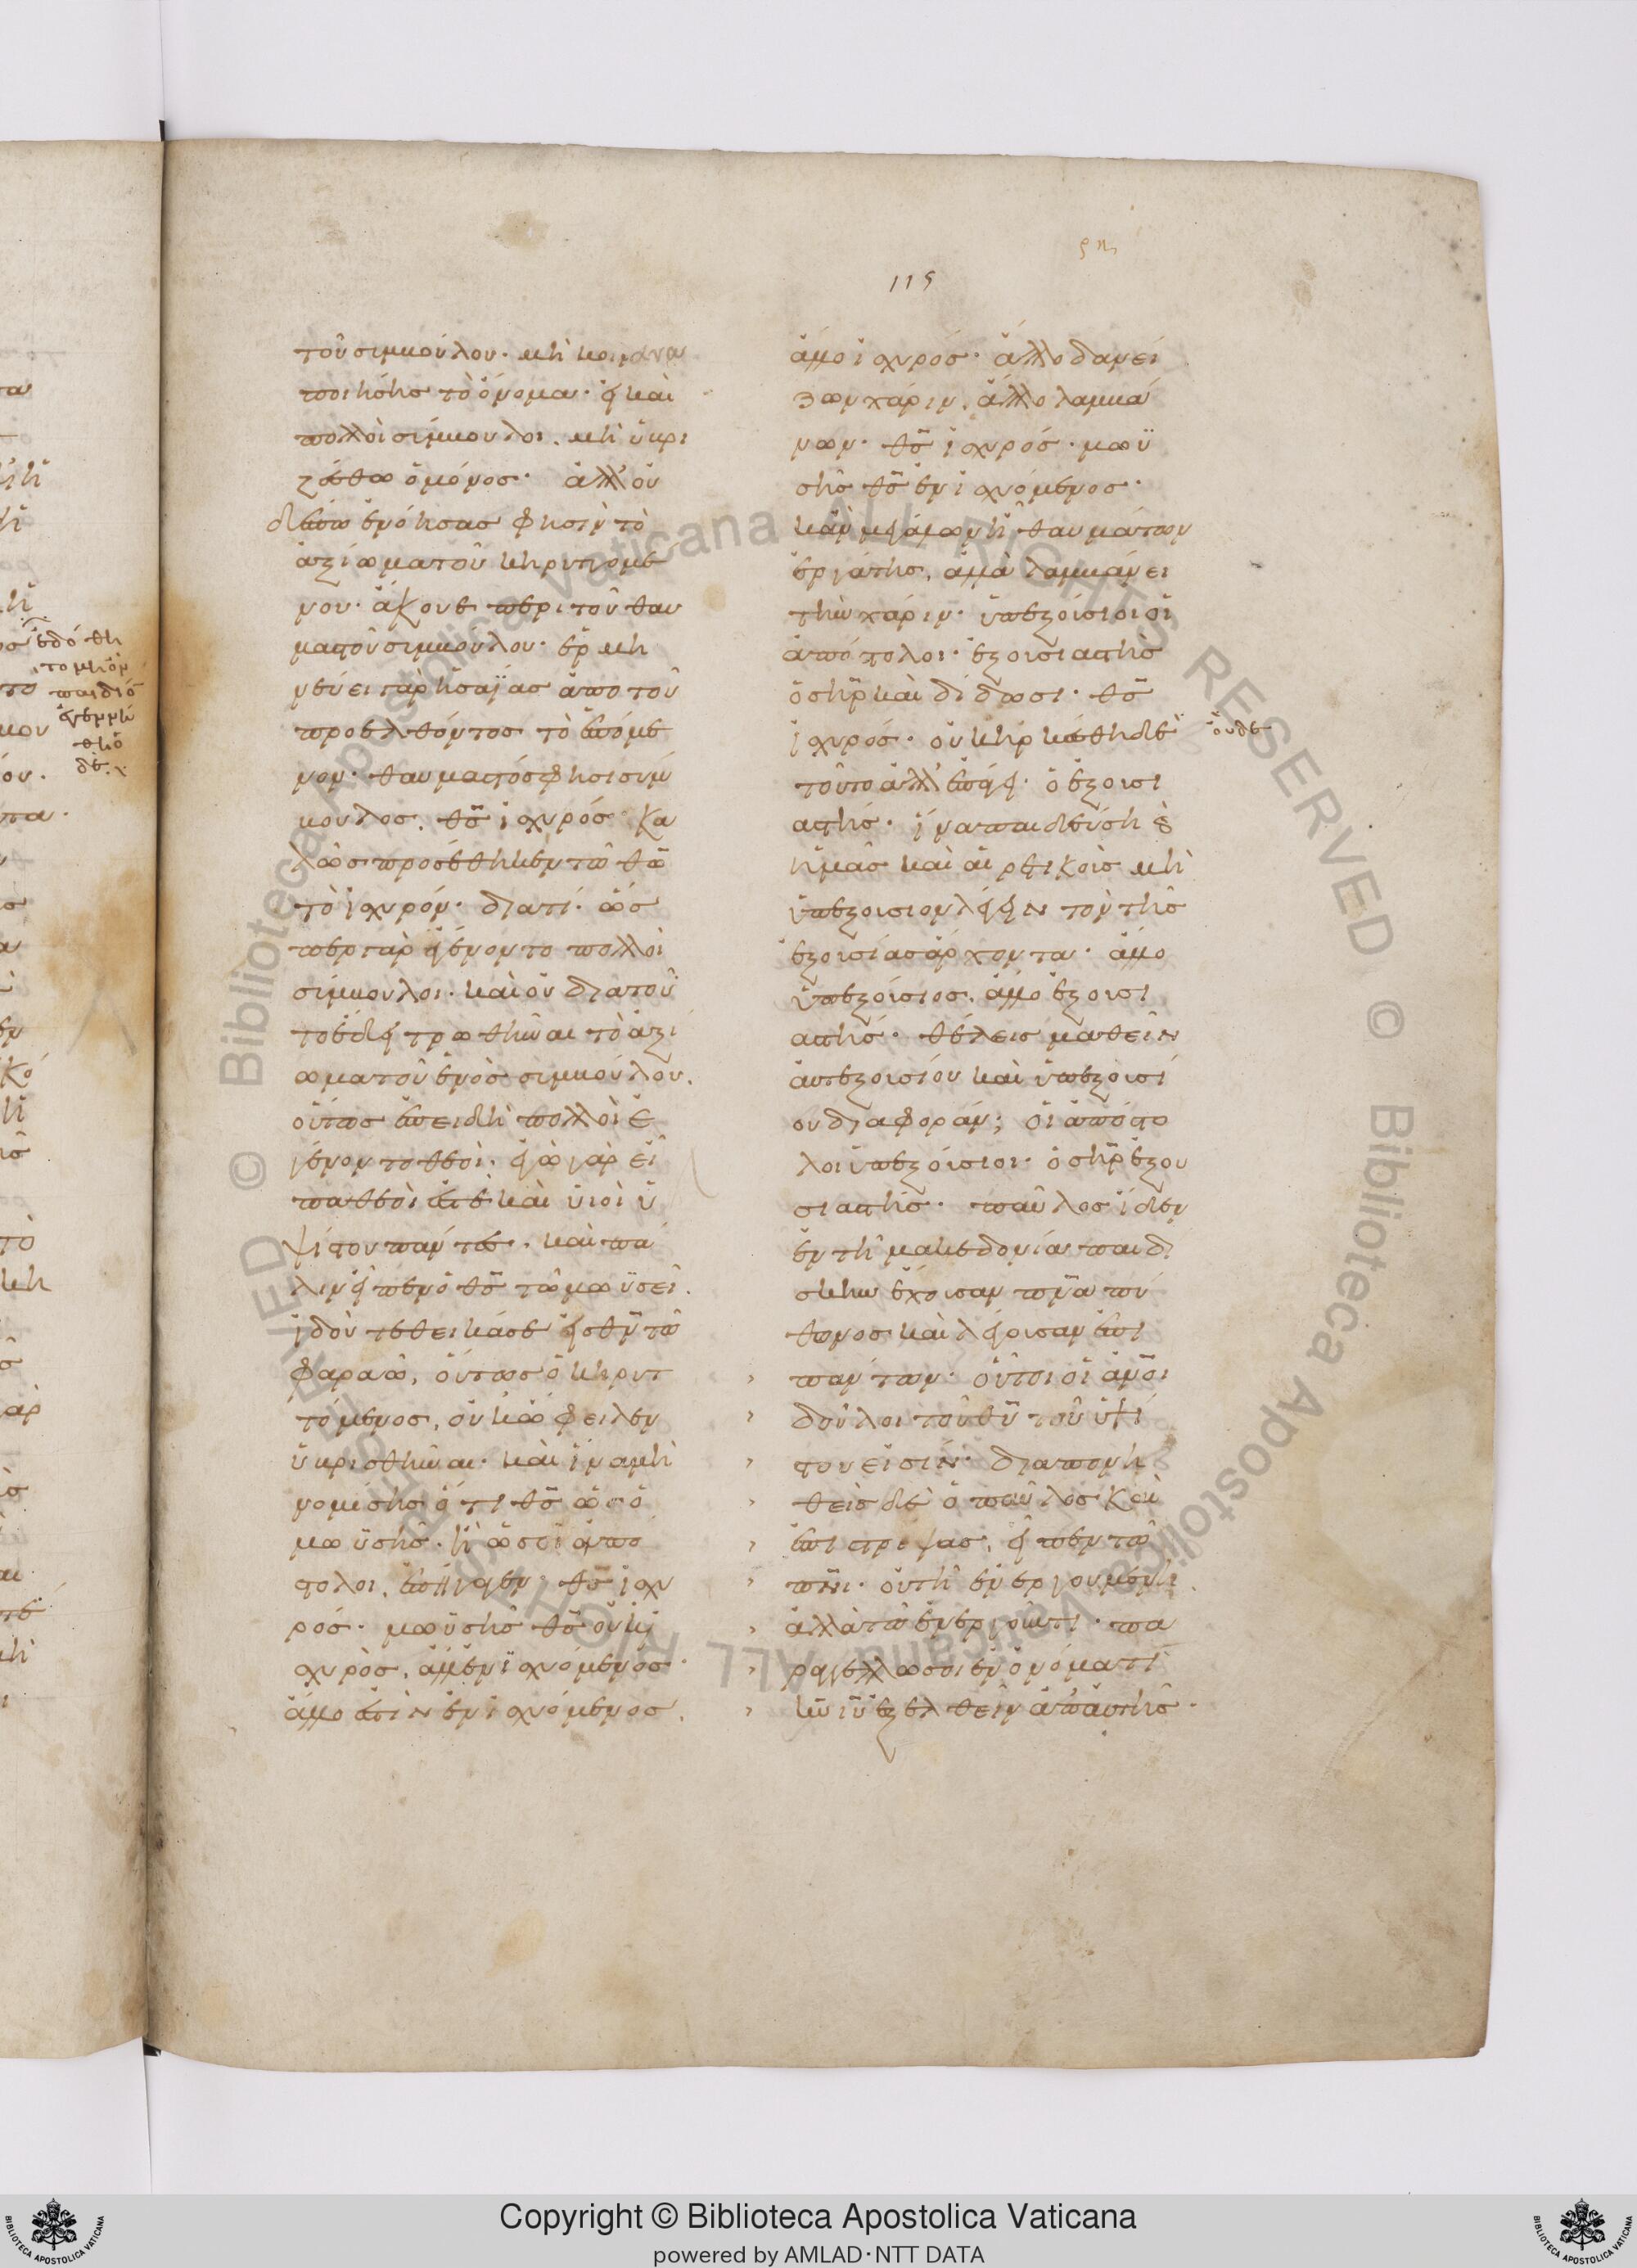 ϟη
115
τοῦ συμβούλου· μὴ κοινὸν
ποιήσῃς τὸ ὄνομα· ἐγένοντο καὶ
πολλοὶ σύμβουλοι. μὴ ὑβρι
ζέσθω ὁ μόνος· ἀλλ' οὐ
δέπω ἐνόησας φησὶν τὸ
ἀξίωμα τοῦ κηρυττομέ
νου· ἄκουε περὶ τοῦ θαυ
μαστοῦ συμβούλου· ἑρμη
νεύει γὰρ ἡσαΐας ἀπὸ τοῦ
προελθόντος τὸ ἑπόμε
νον· θαυμαστός φησι σύμ
βουλος. θς ἰσχυρός· κα
λῶς προσέθηκεν τῶ θω
τὸ ἰσχυρόν· διατί· ὥσ
περ γὰρ ἐγένοντο πολλοὶ
σύμβουλοι· καὶ οὐ διὰ τοῦ
το ἔδει τρωθῆναι τὸ ἀξί
ωμα τοῦ ἑνὸς συμβούλου.
οὕτως ἐπειδὴ πολλοὶ ἐ
γένοντο θεοὶ· ἐγὼ γὰρ εἶ
πα θεοὶ ἐστὲ καὶ υἱοὶ ὑ
ψίστου πάντες· καὶ πά
λιν εἶπεν ὁ θς τῶ μωϋσεῖ.
ἰδοὺ τέθεικά σε εἰς θν τῶ
φαραώ, οὕτως ὁ κηρυτ
τόμενος, οὐκ ὤφειλεν
ὑβρισθῆναι· καὶ ἵνα μὴ
νομίσῃς ὅτι θς ὡς ὁ
μωϋσῆς· ἢ ὡς οἱ ἀπό
στολοι, ἐπήγαγεν· θς ἰσχυ
ρός· μωϋσῆς θς οὐκ ἰ
σχυρὸς, ἀλλ' ἐνισχυόμενος·
ἄλλο ἐστὶν ἐνισχυόμενος.
ἄλλο ἰσχυρός· ἄλλο δανεί
ζων χάριν. ἄλλο λαμβά
νων· θς ἰσχυρός· μωϋ
σῆς θς ἐνισχυόμενος·
κἂν μεγάλων ἦ θαυμάτων
ἐργάτης, ἀλλὰ λαμβάνει
τὴν χάριν· ὑπεξούσιοι οἱ
ἀπόστολοι· ἐξουσιαστὴς
ὁ σὴρ καὶ δίδωσι· θς
ἰσχυρός· οὐκ ἦρκέσθη δὲ
οὐδὲ
τοῦτο ἀλλ' ἐπάγει· ὁ ἐξουσι
αστής· ἵνα παιδεύσῃ καὶ
ἡμᾶς καὶ αἱρετικοὺς μὴ
ὑπεξούσιον λέγειν τὸν τῆς
ἐξουσίας ἄρχοντα· ἄλλο
ὑπεξούσιος. ἄλλο ἐξουσι
αστής· θέλεις μαθεῖν
αὐτεξουσίου καὶ ὑπεξουσί
ου διαφοράν; οἱ ἀπόστο
λοι ὑπεξούσιοι· ὁ σὴρ ἐξου
σιαστής· παῦλος ἴδεν
ἐν τῆ μακεδονία παιδί
σκην ἔχουσαν πνα πύ
θωνος καὶ λέγουσαν ἐπὶ
πάντων· οὗτοι οἱ ἀνοι
δοῦλοι τοῦ θυ τοῦ ὑψί
στου εἰσίν· διαπονη
θεὶς δὲ ὁ παῦλος καὶ
ἐπιστρέψας, εἶπεν τῶ
πνι· οὐ τῆ ἐνεργουμένῃ.
ἀλλὰ τῶ ἐνεργοῦντι· πα
ραγγέλλω σοι ἐν ὀνόματι
κυ ιυ ἐξελθεῖν ἀπ' αὐτῆς·
Copyright © Biblioteca Apostolica Vaticana
powered by AMLAD·NTT DATA